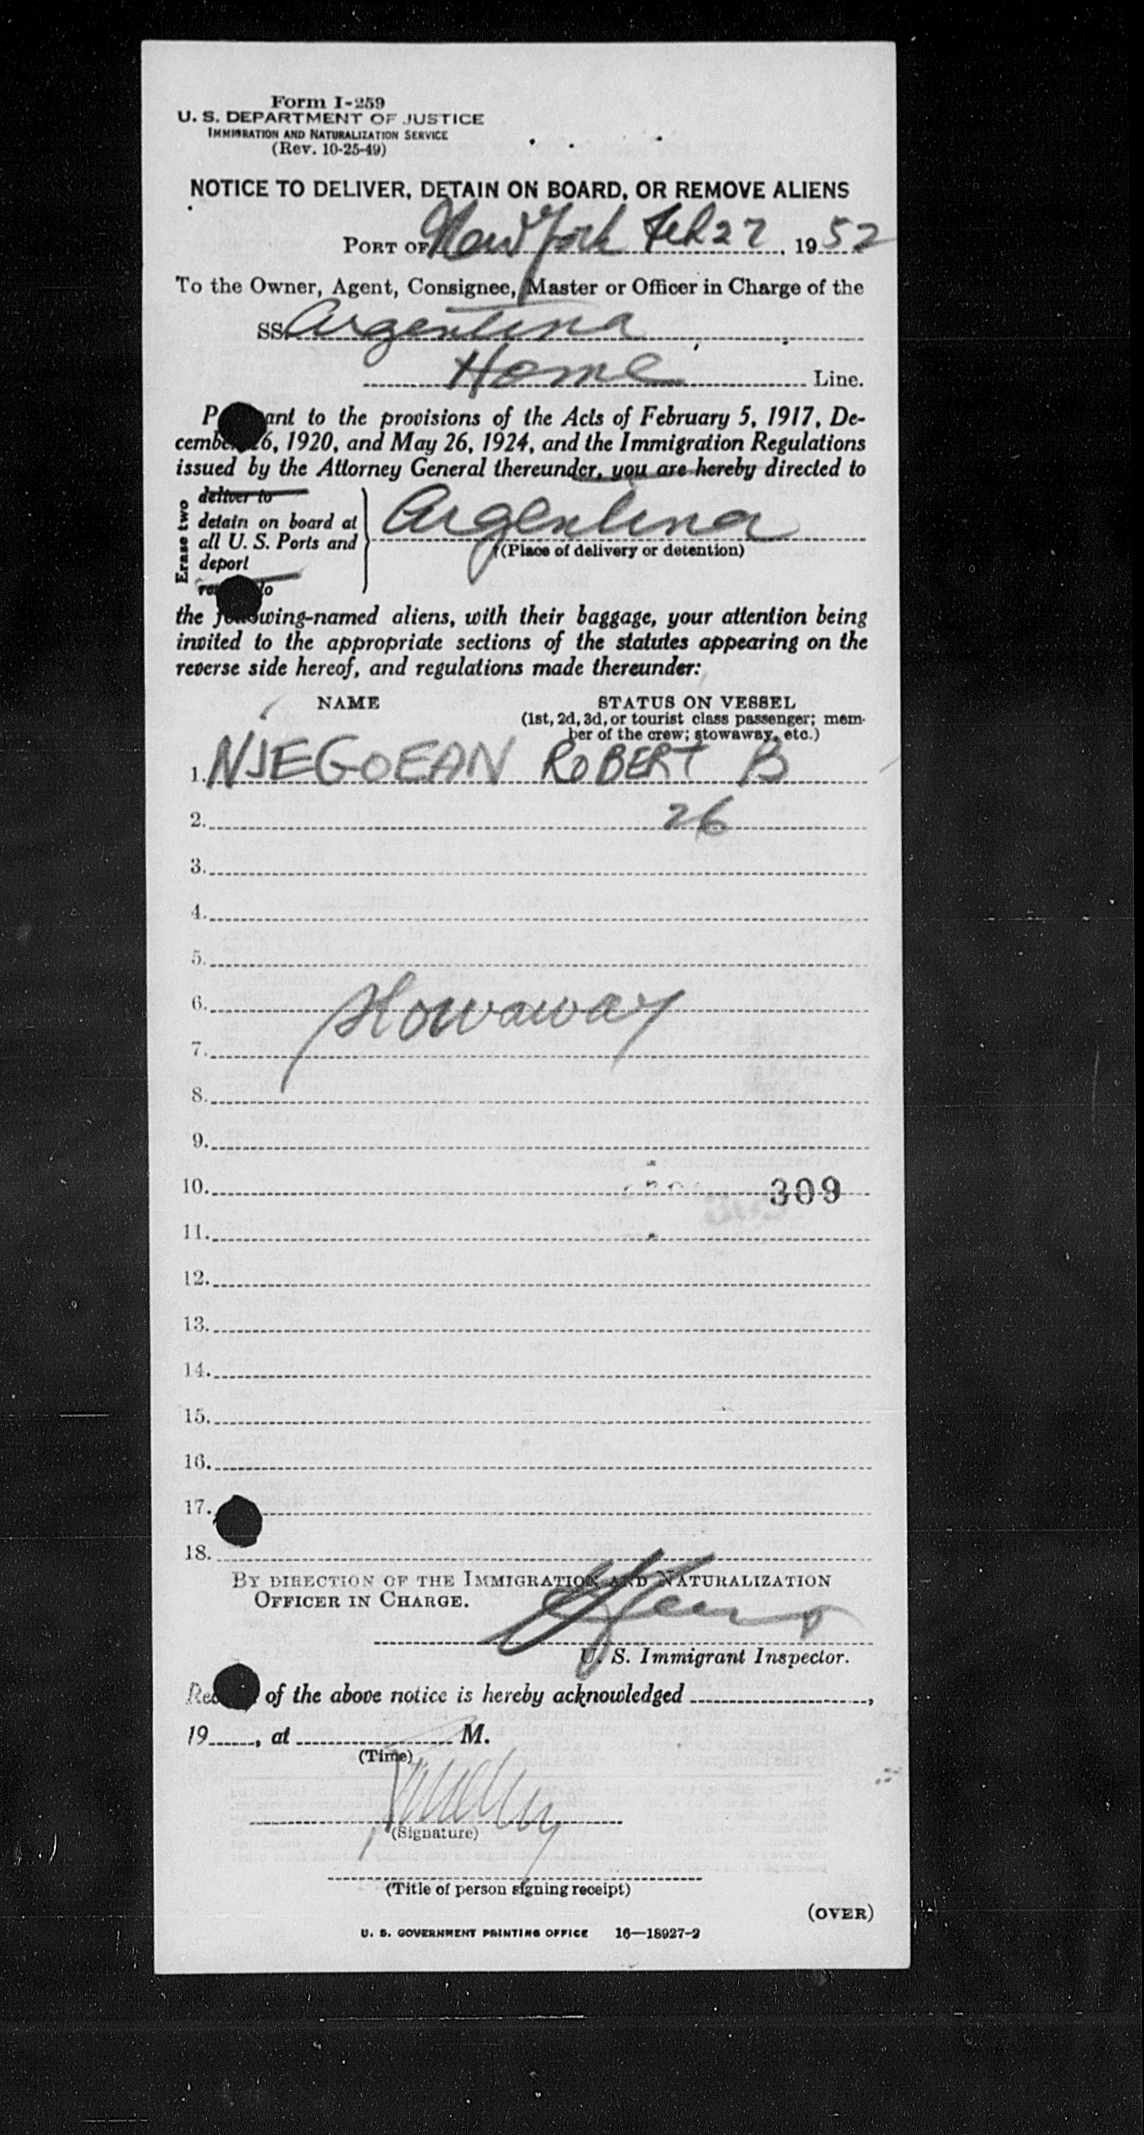 Form I-259
U. S. DEPARTMENT OF JUSTICE
IMMIGRATION AND NATURALIZATION SERVICE
(Rev. 10-25-49)
NOTICE TO DELIVER, DETAIN ON BOARD, OR REMOVE ALIENS
PORT OF New York Feb 27, 1952
To the Owner, Agent, Consignee, Master or Officer in Charge of the
SS. Argentina
Home Line.
P ant to the provisions of the Acts of February 5, 1917, De-
cember 26, 1920, and May 26, 1924, and the Immigration Regulations
issued by the Attorney General thereunder, you are hereby directed to
Erase two
deliver to
detain on board at
all U. S. Ports and
deport
Argentina
(Place of delivery or detention)
re to
the following-named aliens, with their baggage, your attention being
invited to the appropriate sections of the statutes appearing on the
reverse side hereof, and regulations made thereunder:
NAME STATUS ON VESSEL
(1st, 2d, 3d, or tourist class passenger; mem-
ber of the crew; stowaway, etc.)
1. NJEGOEAN ROBERT B
2. 26
3.
4.
5.
6. Stowaway
7.
8.
9.
10. 309
11.
12.
13.
14.
15.
16.
17.
18.
BY DIRECTION OF THE IMMIGRATION AND NATURALIZATION
OFFICER IN CHARGE.
U. S. Immigrant Inspector.
Re of the above notice is hereby acknowledged ,
19 , at M.
(Time)
(Signature)
(Title of person signing receipt)
(OVER)
U. S. GOVERNMENT PRINTING OFFICE 16—18927-2